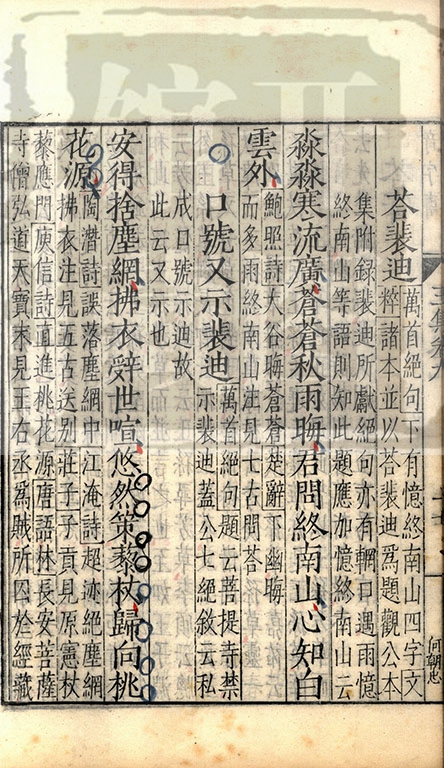 荅裴迪
萬首絕句下有憶終南山四字文
粹諸本並以荅裴迪爲題觀公本
集附録裴迪所獻絕句亦有輞口遇雨憶
終南山等語則知此題應加憶終南山云
淼淼寒流廣蒼蒼秋雨晦君問終南山心知白
雲外
鮑照詩大谷晦蒼蒼楚辭下幽晦
而多雨終南山注見七古問荅
口號又示裴迪
萬首絕句題云菩提寺禁
示裴迪蓋公七絕敘云私
成口號示迪故
此云又示也
安得捨塵網拂衣辭世喧悠然策藜杖歸向桃
花源
陶潛詩誤落塵網中江淹詩超迹絕塵網
拂衣注見五古送别莊子子貢見原憲杖
藜應門庾信詩直進桃花源唐語林長安菩薩
寺僧弘道天寶末見王右丞爲賊所囚於經藏
何朝忠